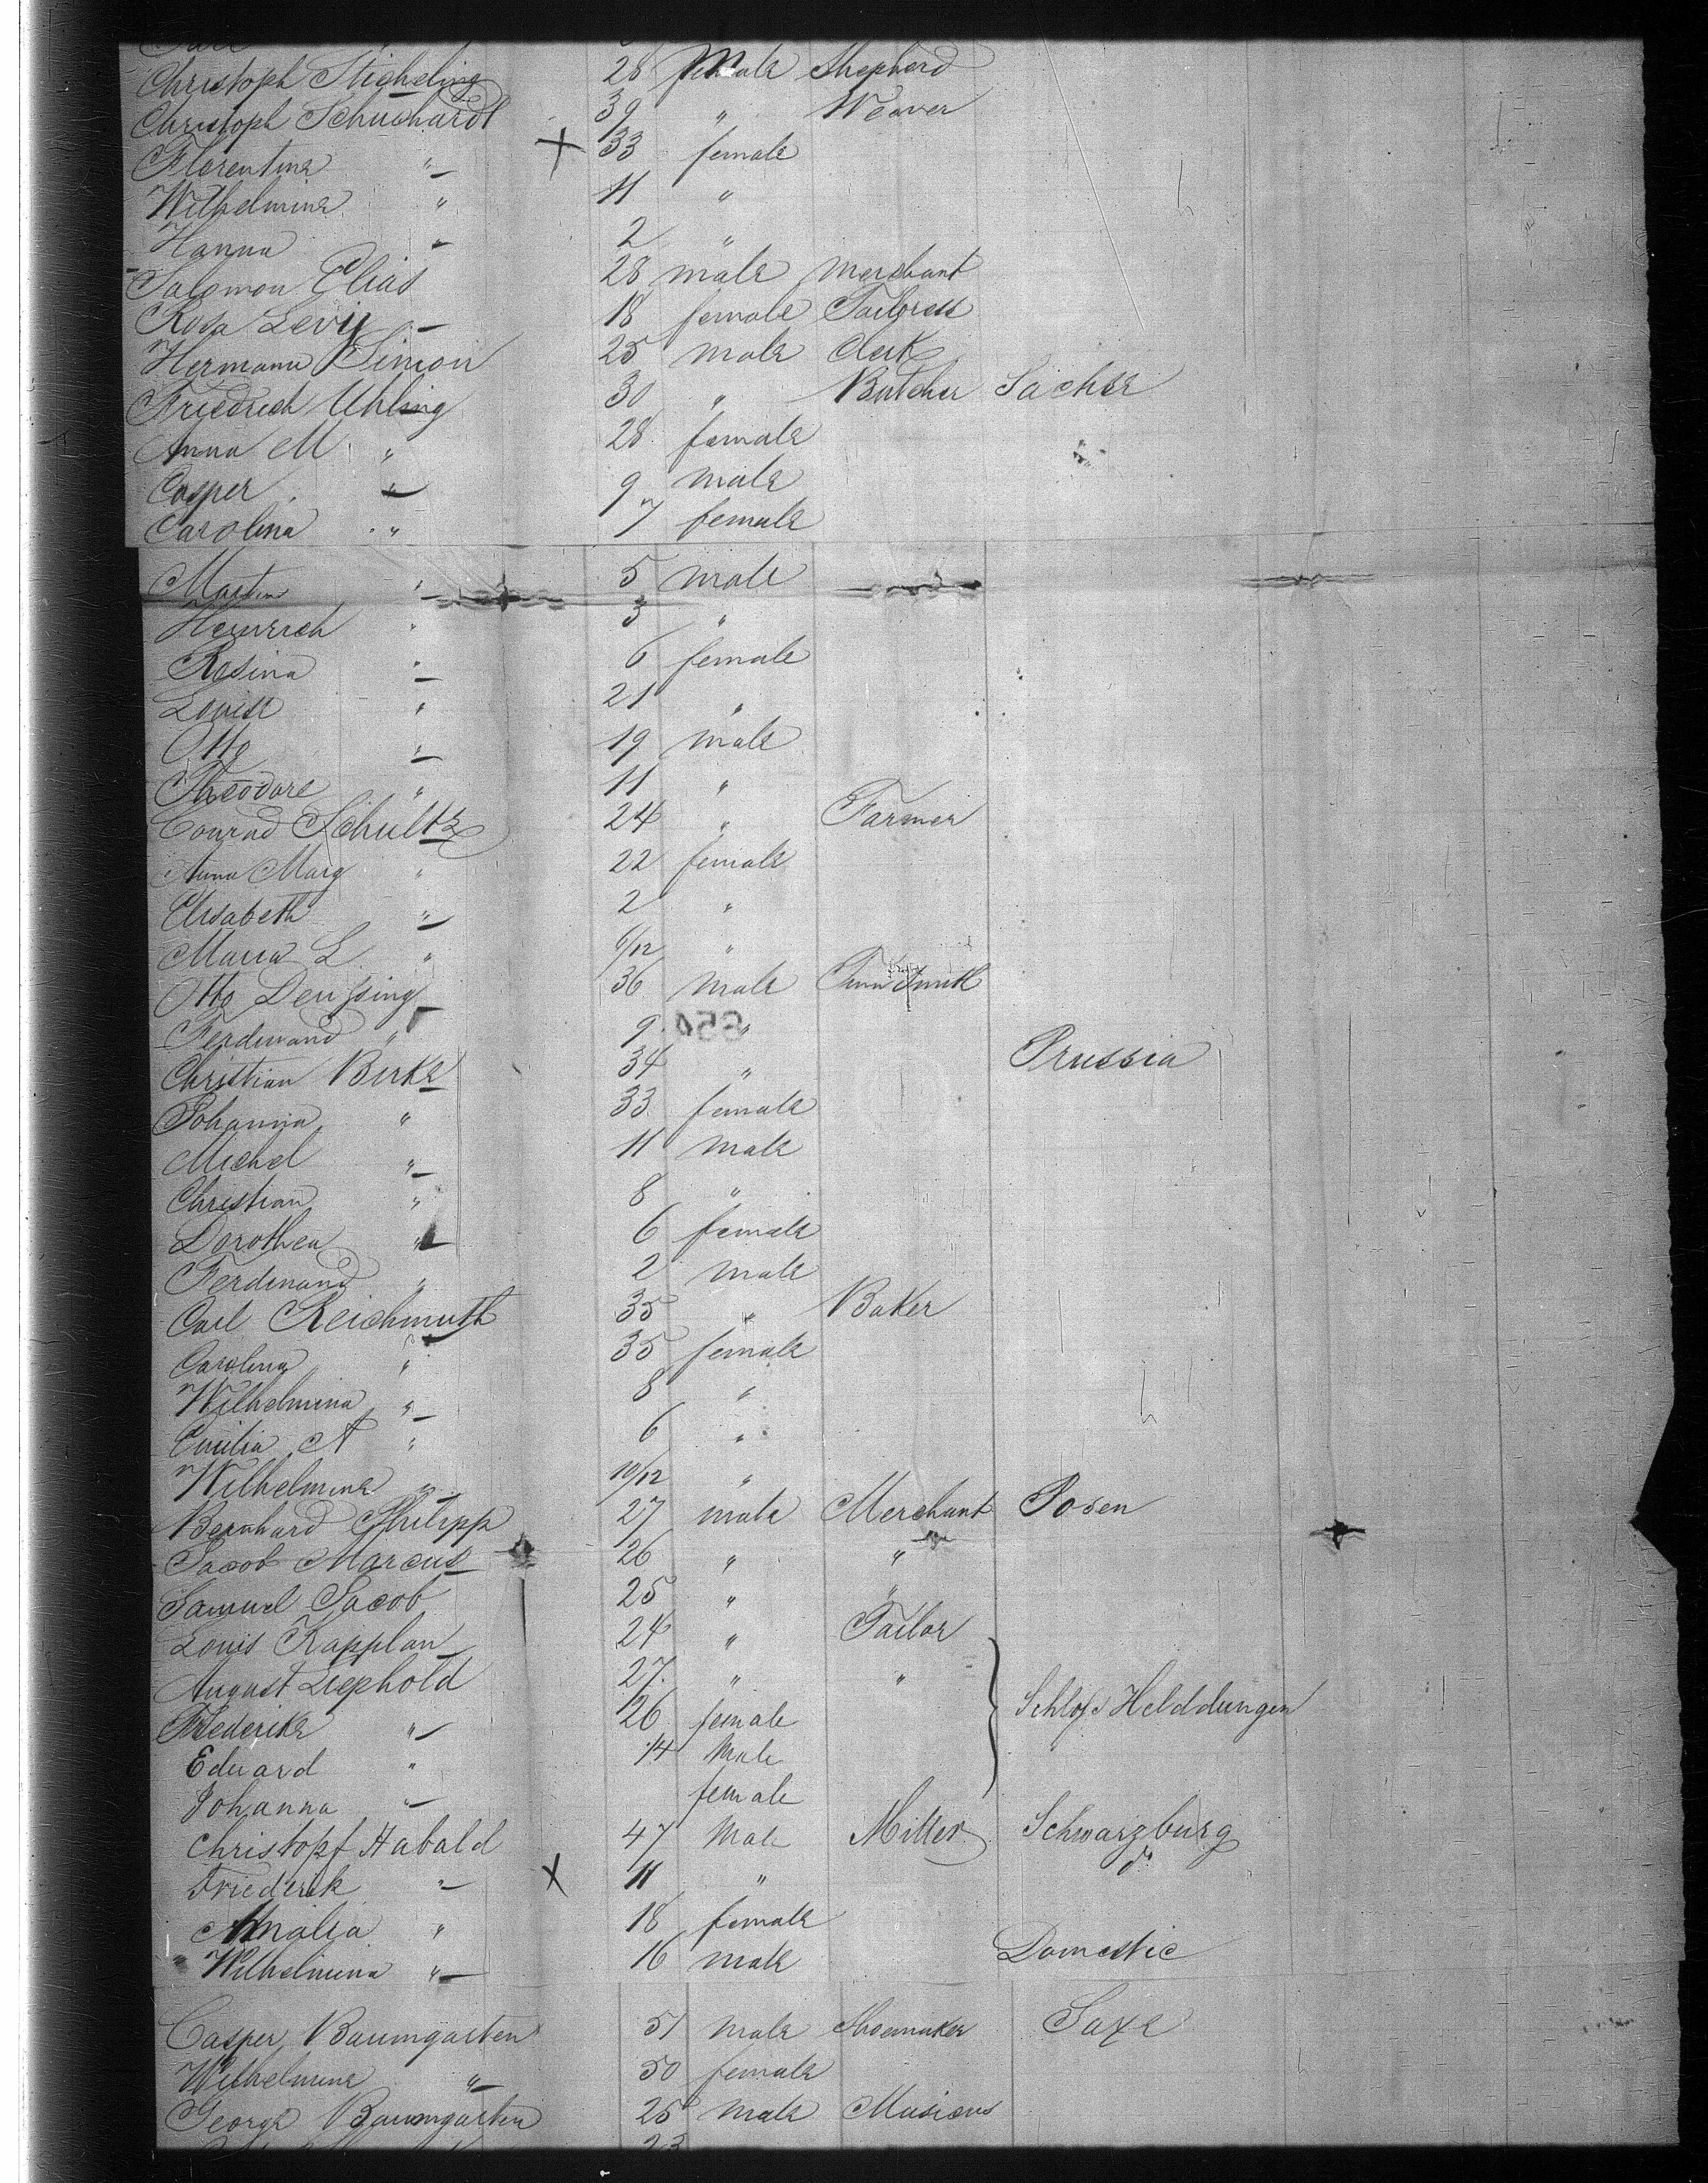 Christoph Sticheling 28 male Shepherd
Christoph Schuchardt 39 " Weaver
Florentine " X 33 female
Wilhelmine " 11 "
Hanna " 2 "
Salomon Elias 28 male Merchant
Rosa Levy 18 female Tailoress
Hermann Simon 25 male Clerk
Friedrich Uhling 30 " Butcher Sachse
Anna M " 28 female
Casper " 9 male
Carolina " 7 female
Martin " 5 male
Heinrich " 3 "
Rosina " 6 female
Louise " 21 "
Otto " 19 male
Theodore " 11 "
Conrad Schultz 24 " Farmer
Anna Marg " 22 female
Elisabeth " 2 "
Maria L " 6/12 "
Otto Deussing 36 male Smith
Ferdinand " 9 "
Christian Birke 34 " Prussia
Johanna " 33 female
Michel " 11 male
Christian " 8 "
Dorothea " 6 female
Ferdinand " 2 male
Carl Reichmuth 35 " Baker
Carolina " 35 female
Wilhelmina " 8 "
Emilia A " 6 "
Wilhelmine " 10/12 "
Bernhard Philipp 27 male Merchant Posen
Jacob Marcus 26 " "
Samuel Jacob 25 " "
Louis Kapplan 24 " Tailor
August Liephold 27 " "
Frederike " 26 female Schloss Helddungen
Eduard " 14 Male
Johanna " female
Christopf Habald 47 Male Miller Schwarzburg
Friederik " X 11 " do
Amalia " 18 female
Wilhelmina " 16 male Domestic
Casper Baumgarten 51 male Shoemaker Saxe
Wilhelmine " 50 female
George Baumgarten 25 male Musicus
23